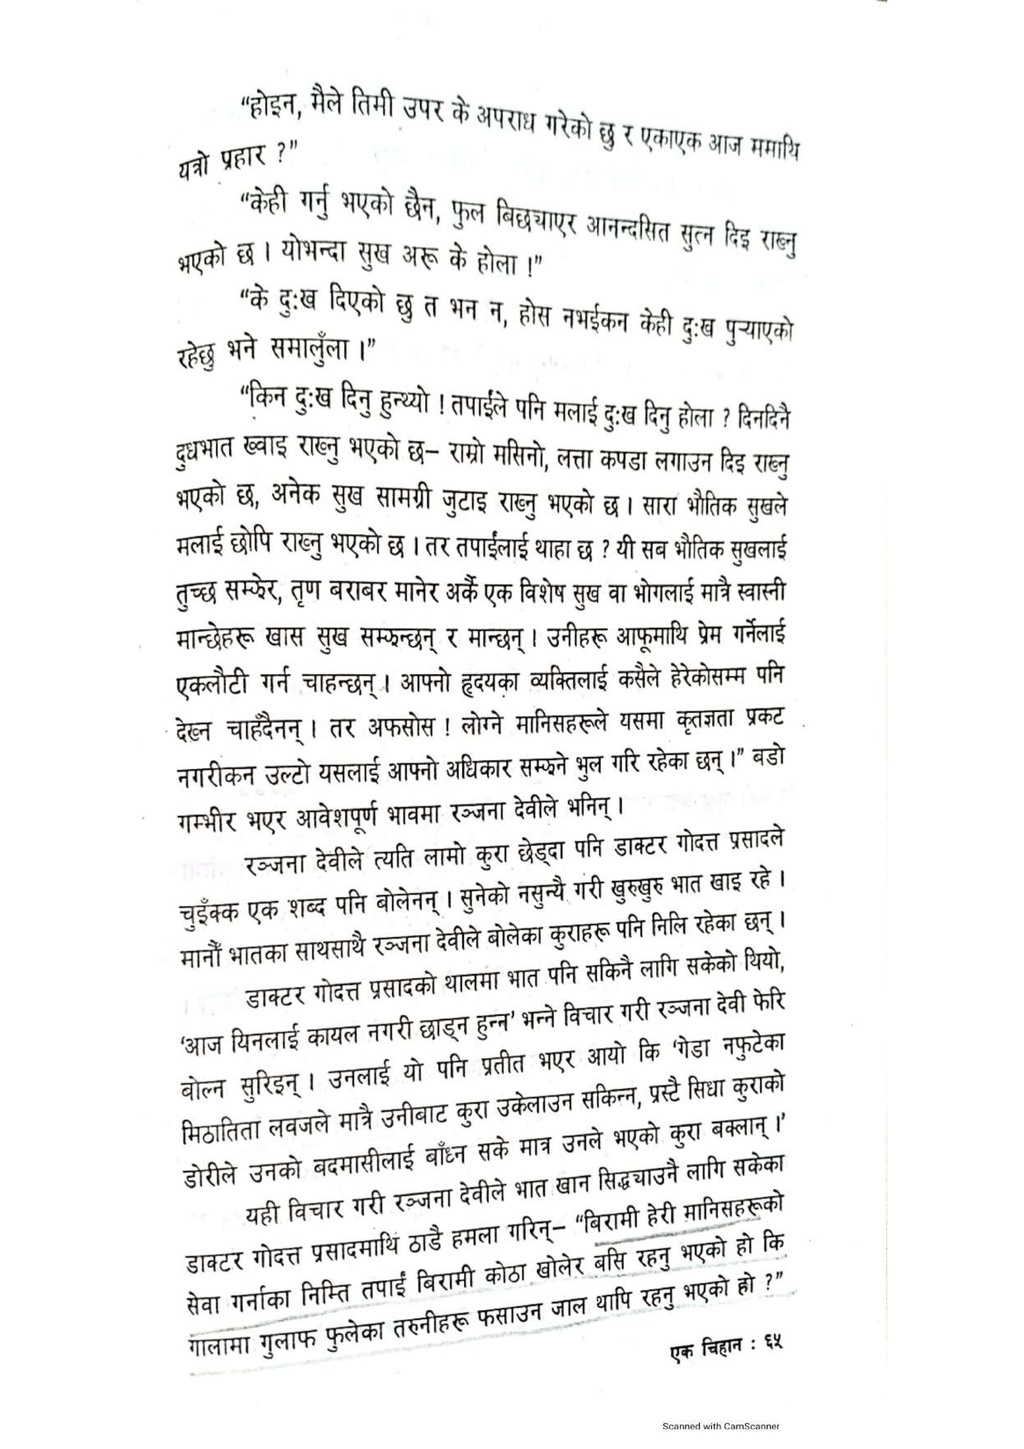 “होइन, मैले तिमी उपर के अपराध गरेको छु र एकाएक आज ममाथि
यत्रो प्रहार ?”
“केही गर्नु भएको छैन, फुल बिछ्याएर आनन्दसित सुत्न दिइ राख्नु
भएको छ । योभन्दा सुख अरू के होला !”
“के दुःख दिएको छु त भन न, होस नभईकन केही दुःख पुऱ्याएको
रहेछु भने समालुँला ।”
“किन दुःख दिनु हुन्थ्यो ! तपाईंले पनि मलाई दुःख दिनु होला ? दिनदिनै
दुधभात ख्वाइ राख्नु भएको छ– राम्रो मसिनो, लत्ता कपडा लगाउन दिइ राख्नु
भएको छ, अनेक सुख सामग्री जुटाइ राख्नु भएको छ । सारा भौतिक सुखले
मलाई छोपि राख्नु भएको छ । तर तपाईंलाई थाहा छ ? यी सब भौतिक सुखलाई
तुच्छ सम्फेर, तृण बराबर मानेर अर्कै एक विशेष सुख वा भोगलाई मात्रै स्वास्नी
मान्छेहरू खास सुख सम्झन्छन् र मान्छन् । उनीहरू आफूमाथि प्रेम गर्नेलाई
एकलौटी गर्न चाहन्छन् । आफ्नो हृदयका व्यक्तिलाई कसैले हेरेकोसम्म पनि
देख्न चाहँदैनन् । तर अफसोस ! लोग्ने मानिसहरूले यसमा कृतज्ञता प्रकट
नगरीकन उल्टो यसलाई आफ्नो अधिकार सम्झने भुल गरि रहेका छन् ।” बडो
गम्भीर भएर आवेशपूर्ण भावमा रञ्जना देवीले भनिन् ।
रञ्जना देवीले त्यति लामो कुरा छेड्दा पनि डाक्टर गोदत्त प्रसादले
चुइँक्क एक शब्द पनि बोलेनन् । सुनेको नसुन्यै गरी खुरुखुरु भात खाइ रहे ।
मानौँ भातका साथसाथै रञ्जना देवीले बोलेका कुराहरू पनि निलि रहेका छन् ।
डाक्टर गोदत्त प्रसादको थालमा भात पनि सकिनै लागि सकेको थियो,
‘आज यिनलाई कायल नगरी छाड्न हुन्न’ भन्ने विचार गरी रञ्जना देवी फेरि
बोल्न सुरिइन् । उनलाई यो पनि प्रतीत भएर आयो कि ‘गेडा नफुटेका
मिठातिता लवजले मात्रै उनीबाट कुरा उकेलाउन सकिन्न, प्रस्टै सिधा कुराको
डोरीले उनको बदमासीलाई बाँध्न सके मात्र उनले भएको कुरा बक्लान् ।’
यही विचार गरी रञ्जना देवीले भात खान सिद्ध्याउनै लागि सकेका
डाक्टर गोदत्त प्रसादमाथि ठाडै हमला गरिन्– “बिरामी हेरी मानिसहरूको
सेवा गर्नाका निम्ति तपाईं बिरामी कोठा खोलेर बसि रहनु भएको हो कि
गालामा गुलाफ फुलेका तरुनीहरू फसाउन जाल थापि रहनु भएको हो ?”
एक चिहान : ६५
Scanned with CamScanner